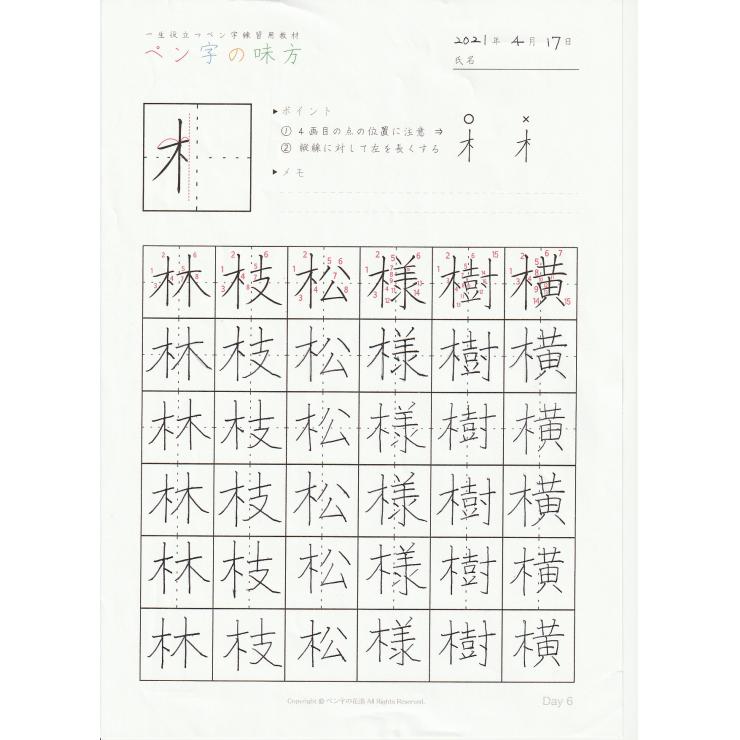 一生役立つペン字練習用教材
ペン字の味方
2021年 4月 17日
氏名
木
▶ポイント
① 4画目の点の位置に注意 ⇒
② 縦線に対して左を長くする
○ ×
木 木
▶メモ
林 枝 松 様 樹 横
林 枝 松 様 樹 横
林 枝 松 様 樹 横
林 枝 松 様 樹 横
林 枝 松 様 樹 横
林 枝 松 様 樹 横
Copyright © ペン字の花道 All Rights Reserved.
Day 6